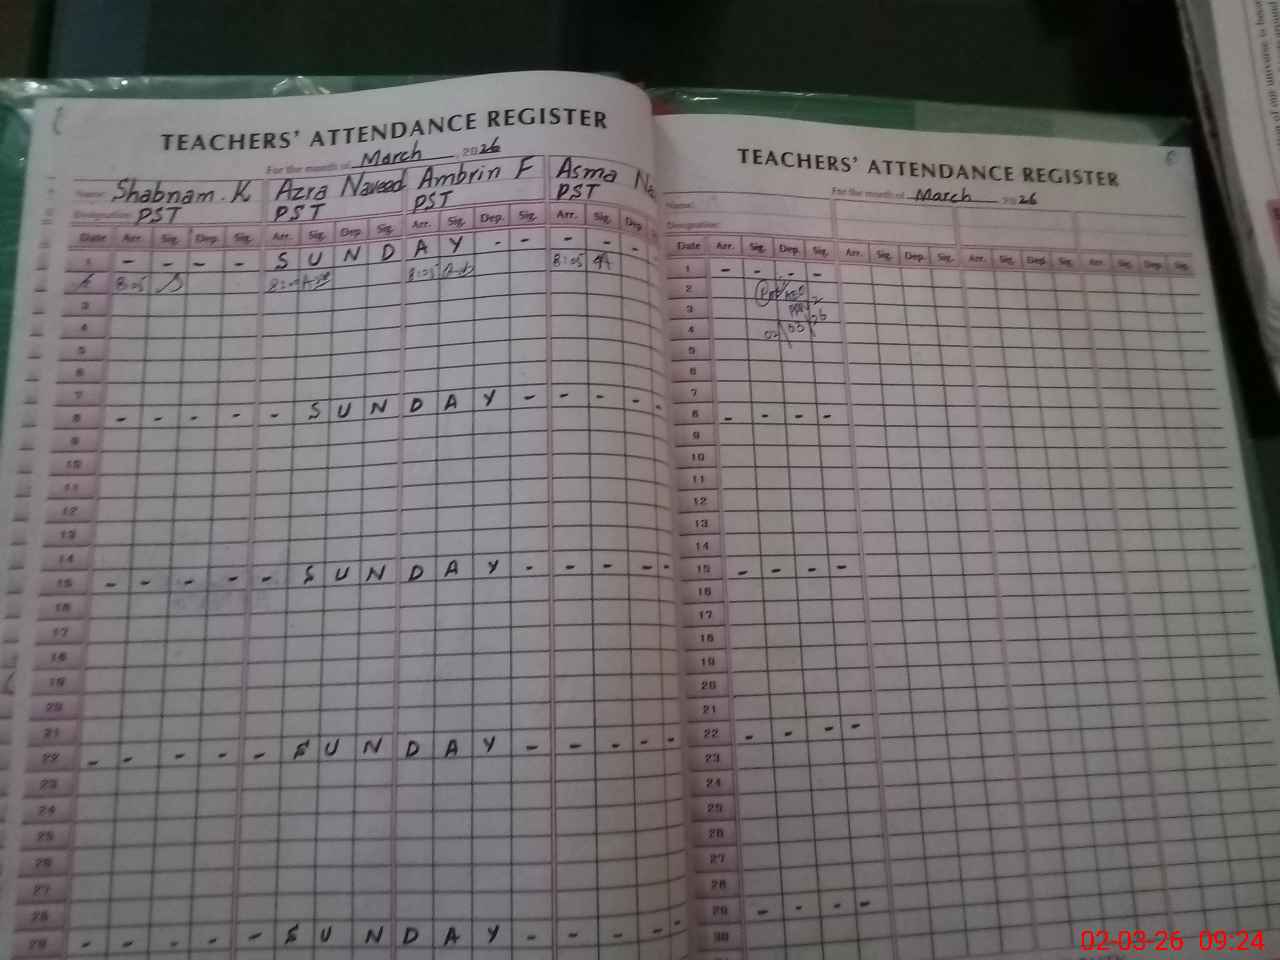 TEACHERS' ATTENDANCE REGISTER
For the month of March 2026
Name: Shabnam. K Azra Naveed Ambrin F Asma
Designation: PST PST PST PST
Date Arr. Sig. Dep. Sig. Arr. Sig. Dep. Sig. Arr. Sig. Dep. Sig. Arr. Sig. Dep.
1 - - - - S U N D A Y - - - - -
8:05 8:05 8:05
3
4
5
6
7
8 - - - - - S U N D A Y - - - - -
9
10
11
12
13
14
15 - - - - - S U N D A Y - - - - -
16
17
18
19
20
21
22 - - - - - S U N D A Y - - - - -
23
24
25
26
27
28
29 - - - - - S U N D A Y - - - - -
TEACHERS' ATTENDANCE REGISTER
For the month of March 2026
Name:
Designation:
Date Arr. Sig. Dep. Sig. Arr. Sig. Dep. Sig. Arr. Sig. Dep. Sig. Arr. Sig. Dep. Sig.
1 - - - -
2
3
4
5
6
7
8 - - - -
9
10
11
12
13
14
15 - - - -
16
17
18
19
20
21
22 - - - -
23
24
25
26
27
28
29 - - - -
30
02-03-26 09:24